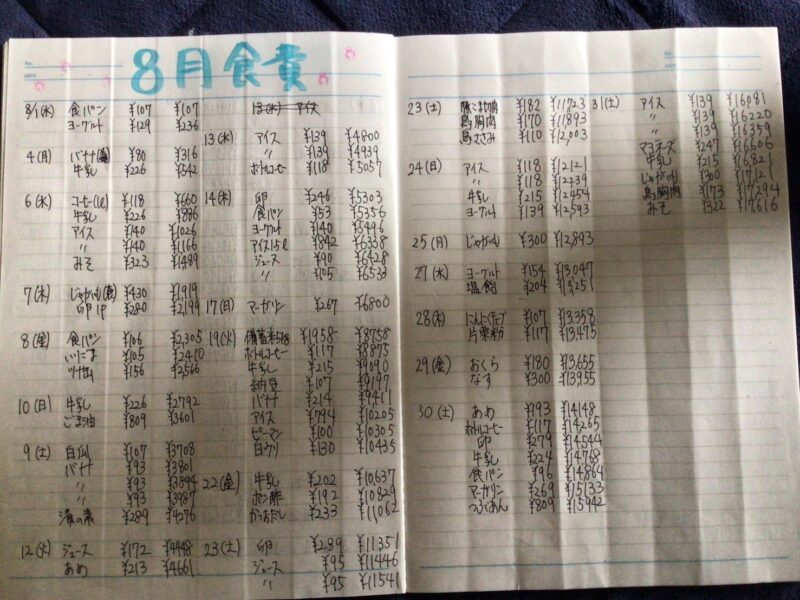 No.
DATE
8月食費
8/1(水) 食パン ¥107 ¥107
ヨーグルト ¥129 ¥236
4(月) バナナ ¥80 ¥316
牛乳 ¥226 ¥542
6(水) コーヒー(1ℓ) ¥118 ¥660
牛乳 ¥226 ¥886
アイス ¥140 ¥1026
〃 ¥140 ¥1166
みそ ¥323 ¥1489
7(木) じゃがいも ¥430 ¥1919
卵1P ¥280 ¥2,199
8(金) 食パン ¥106 ¥2,305
いりごま ¥105 ¥2410
ツナ缶 ¥156 ¥2,566
10(日) 牛乳 ¥226 ¥2792
ごま油 ¥809 ¥3601
9(土) 白瓜 ¥107 ¥3708
バナナ ¥93 ¥3801
〃 ¥93 ¥3894
〃 ¥93 ¥3987
漬の素 ¥289 ¥4276
12(火) ジュース ¥172 ¥4448
あめ ¥213 ¥4661
13(水) アイス
13(水) アイス ¥139 ¥4800
〃 ¥139 ¥4939
ボトルコーヒー ¥118 ¥5057
14(木) 卵 ¥246 ¥5303
食パン ¥53 ¥5356
ヨーグルト ¥140 ¥5496
アイス ¥842 ¥6338
ジュース ¥90 ¥6428
〃 ¥105 ¥6533
17(日) マーガリン ¥267 ¥6800
19(火) 備蓄米5kg ¥1958 ¥8758
ボトルコーヒー ¥117 ¥8875
牛乳 ¥215 ¥9090
納豆 ¥107 ¥9197
バナナ ¥214 ¥9411
アイス ¥794 ¥10205
ピーマン ¥100 ¥10305
白ウリ ¥130 ¥10435
22(金) 牛乳 ¥202 ¥10637
ポン酢 ¥192 ¥10829
かつおだし ¥233 ¥11,062
23(土) 卵 ¥289 ¥11351
ジュース ¥95 ¥11446
〃 ¥95 ¥11541
No.
DATE
23(土) 豚こま切肉 ¥182 ¥11723
鳥胸肉 ¥170 ¥11893
鳥ささみ ¥110 ¥12,003
24(日) アイス ¥118 ¥12121
〃 ¥118 ¥12239
牛乳 ¥215 ¥12454
ヨーグルト ¥139 ¥12,593
25(月) じゃがいも ¥300 ¥12,893
27(水) ヨーグルト ¥154 ¥13,047
塩飴 ¥204 ¥13,251
28(木) にんにくチューブ ¥107 ¥13,358
片栗粉 ¥117 ¥13,475
29(金) おくら ¥180 ¥13,655
なす ¥300 ¥13,955
30(土) あめ ¥193 ¥14148
ボトルコーヒー ¥117 ¥14265
卵 ¥279 ¥14,544
牛乳 ¥224 ¥14768
食パン ¥96 ¥14864
マーガリン ¥269 ¥15133
つぶあん ¥809 ¥15942
31(土) アイス ¥139 ¥16081
〃 ¥139 ¥16220
〃 ¥139 ¥16359
マヨネーズ ¥247 ¥16606
牛乳 ¥215 ¥16821
じゃがいも ¥300 ¥17,121
鳥胸肉 ¥173 ¥17294
みそ ¥322 ¥17,616